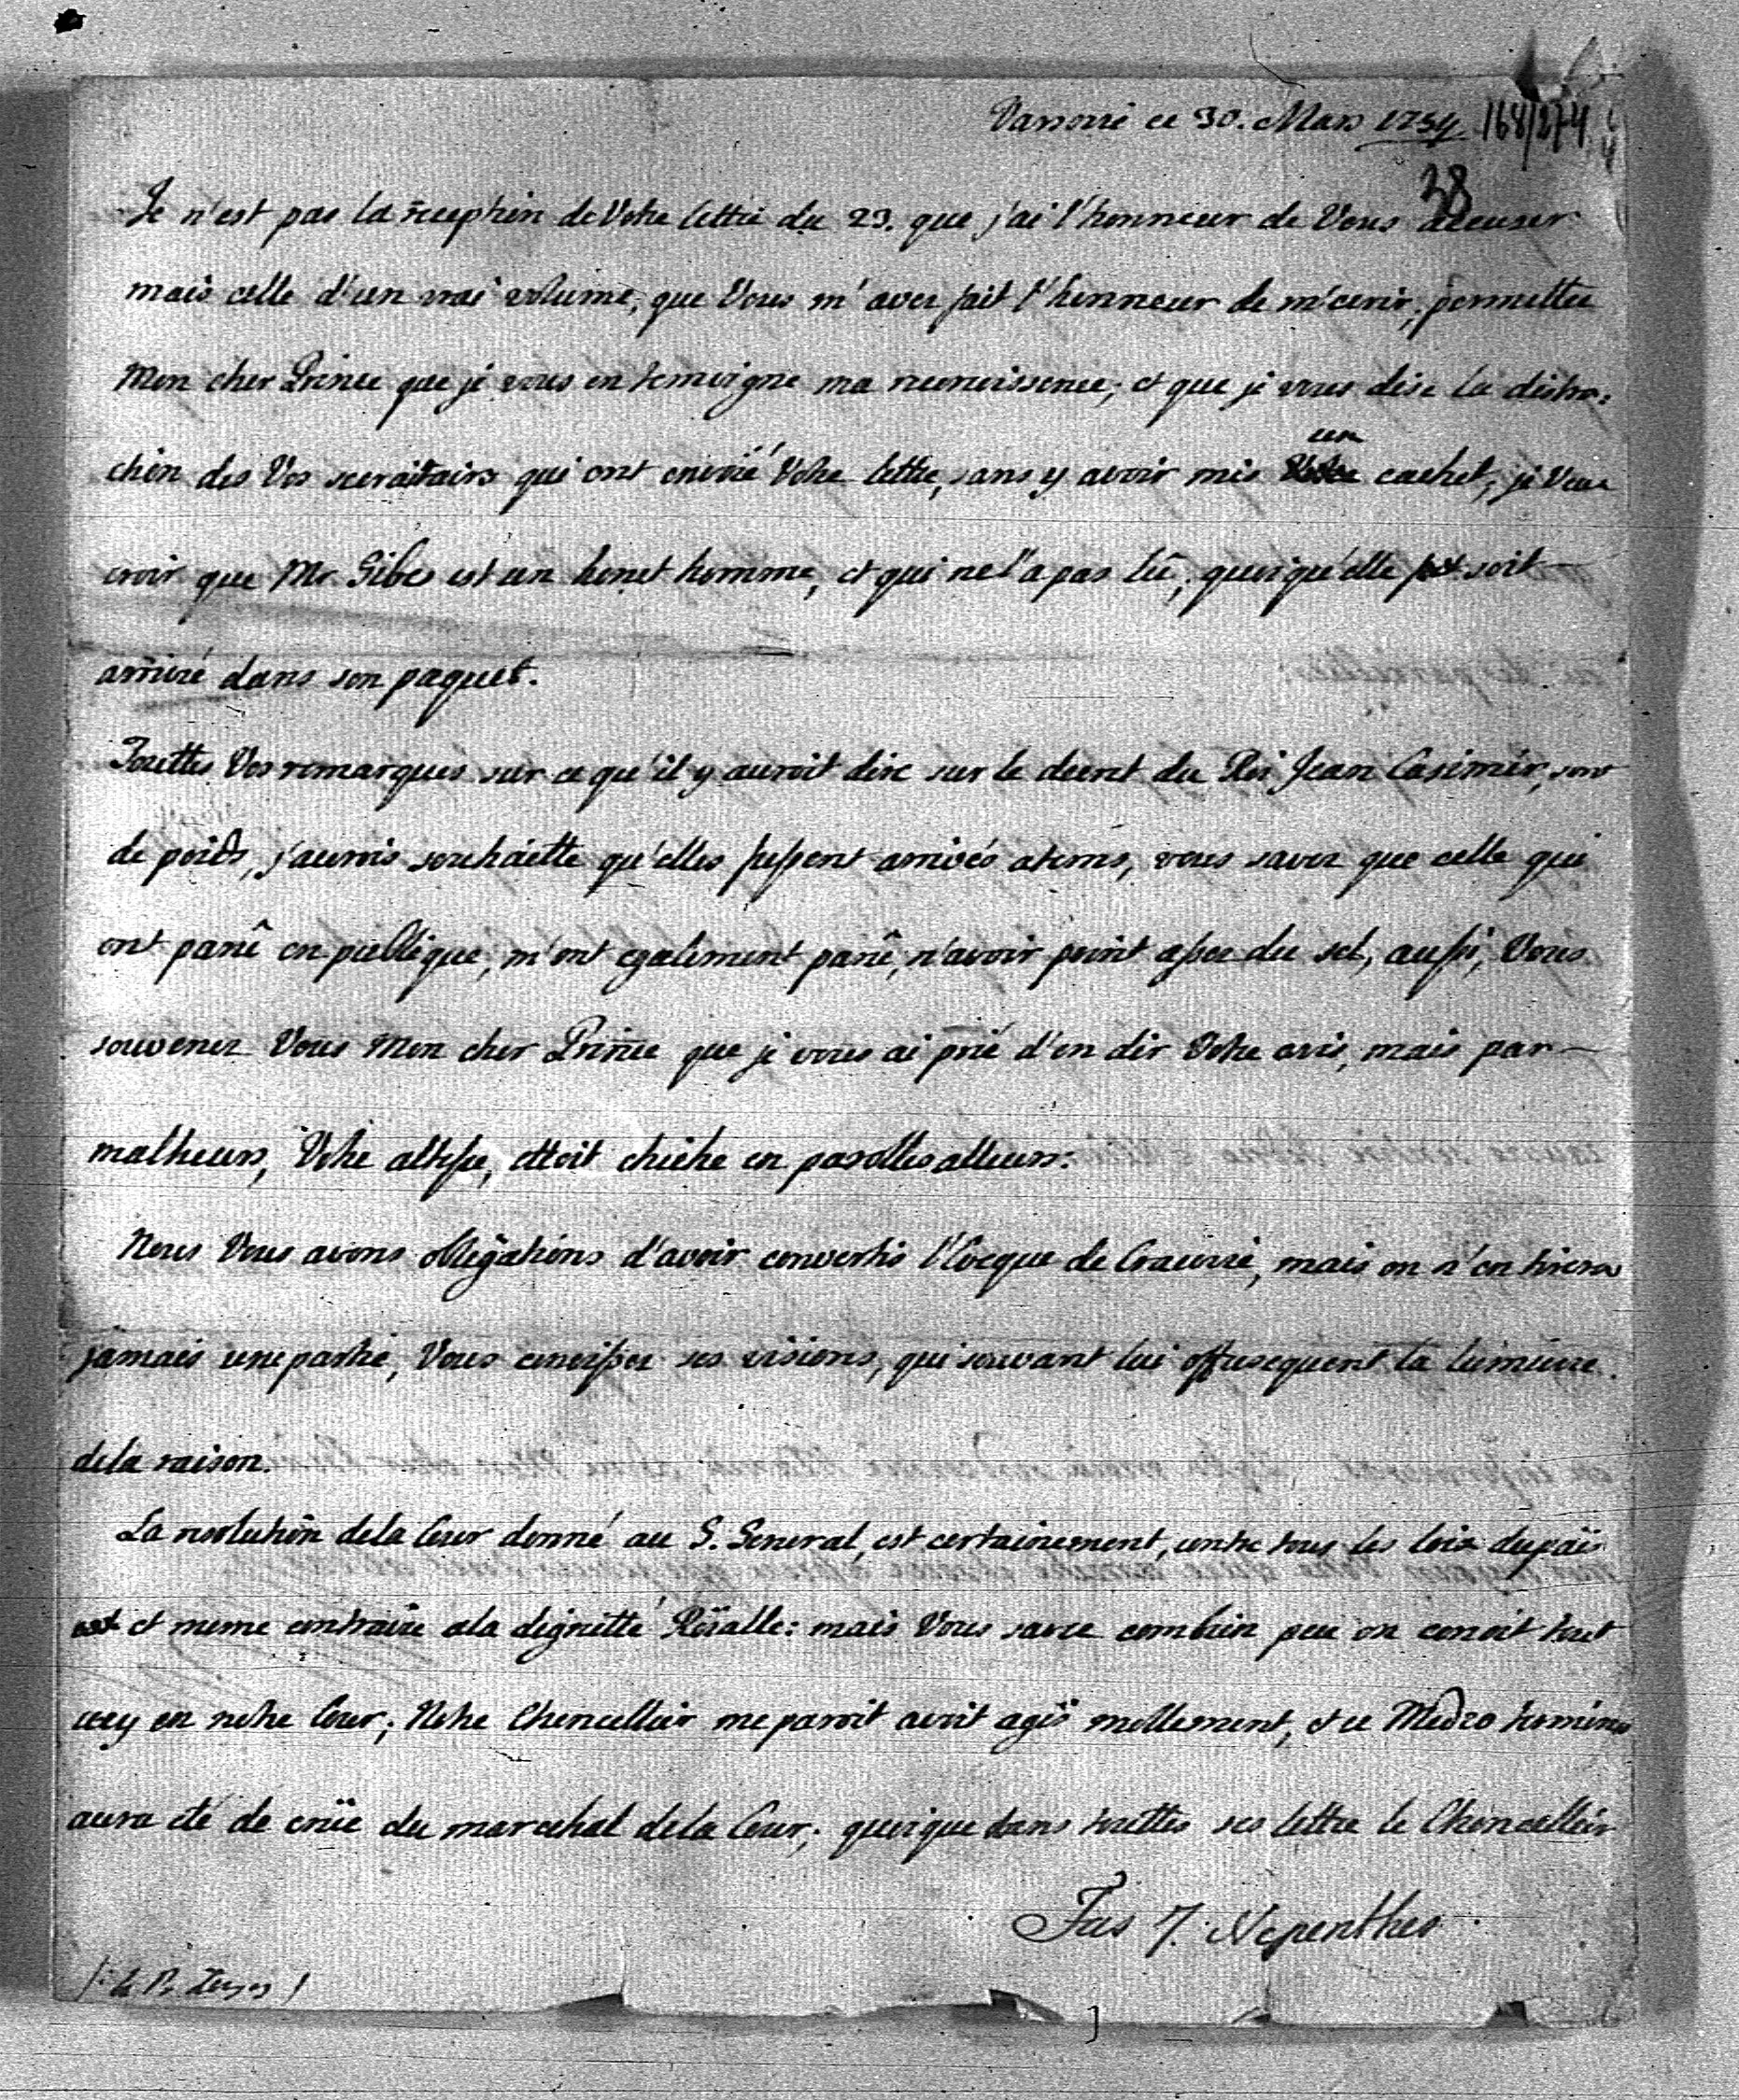 Varsovie ce 30. Mars 1754. 168/274
38
Ce n'est pas la reception de Votre lettre du 23. que j'ai l'honneur de Vous accuser
mais celle d'un vrai volume, que Vous m'avez fait l'honneur de m'ecrir, permettez
Mon cher Prince que je vous en temoigne ma reconoissence; et que je vous dise la distra=
ction des Vos secraitairs qui ont envoié Votre lettre, sans y avoir mis un cachet, je Veux
croir que Mr. Gibes est un honet homme, et qui ne l'a pas lû, quoiqu'elle soit
arrivé dans son paquet.
Touttes Vos remarques sur ce qu'il y auroit dire sur le decret du Roi Jean Casimir, sont
de poids, j'aurois souhaitte qu'elles fussent arrivés atems, vous savez que celle qui
ont parû en publique, m'ont egalement parû, n'avoir point assez du sel, aussi, Vous
souvenez Vous Mon cher Prince que je vous ai prié d'en dir Votre avis, mais par
malheurs, Votre altesse, ettoit chiche en parolles alleurs:
Nous Vous avons obligations d'avoir convertis l'Eveque de Cracovie, mais on n'en tirera
jamais une partie, Vous conoissez ses visions, qui souvant lui offusequent la lumiere
de la raison.
La resolution de la Cour donné au G. General, est certainement, contre tous les loix du païs
et meme contraire a la dignitté Roïalle: mais Vous savez combien peu on conoit tout
cecy en notre Cour; Notre Chencellier me paroit avoit agis mollement, et ce Medzo termine
aura été de crüe du marechal de la Cour; quoique dans touttes ses lettre le Chencellier
Fas 7. Nepenthes